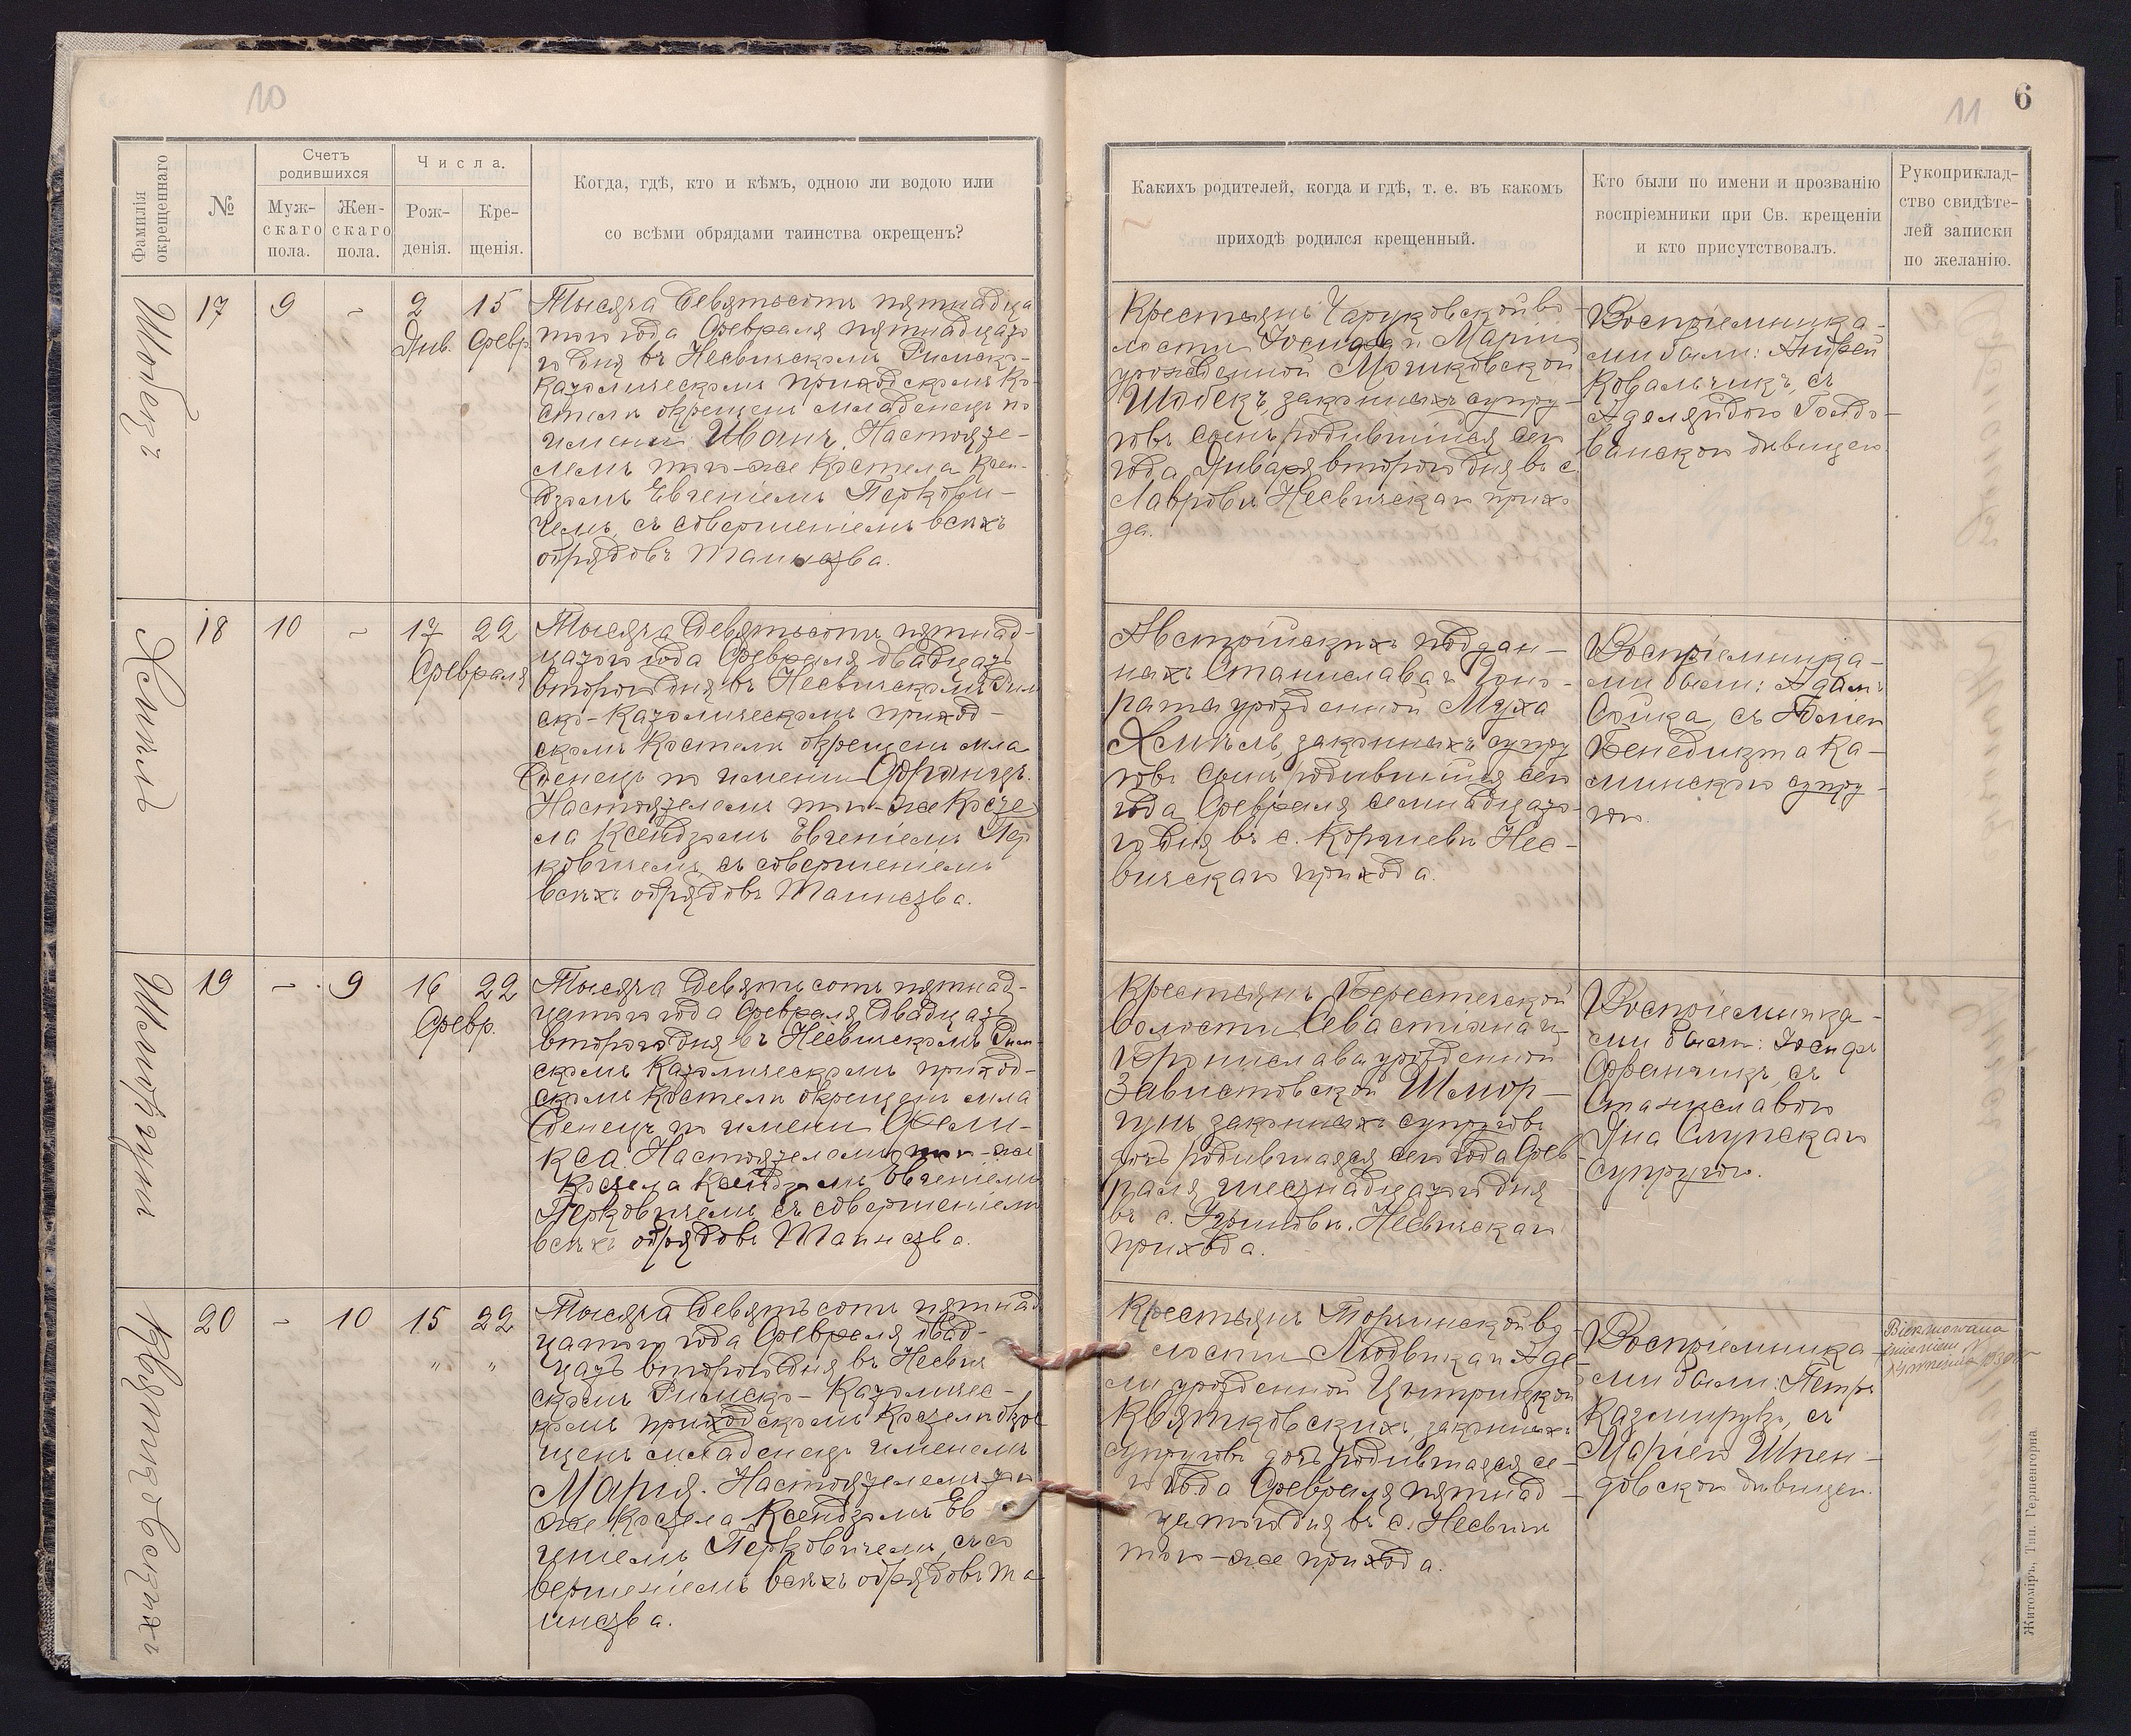 10
Фамилія окрещеннаго
№
Счетъ родившихся
Муж-
скаго
пола.
Жен-
скаго
пола.
Числа.
Рож-
денія.
Кре-
щенія.
Когда, гдѣ, кто и кѣмъ, одною ли водою или
со всѣми обрядами таинства окрещенъ?
Шобекъ
17
9
-
2
Янв.
15
Февр.
Тысяча девятьсотъ пятнадца
таго года Февраля пятнадцато
го дня въ Несвичскомъ Римско-
Католическомъ приходскомъ Ко-
стелѣ окрещенъ младенецъ по
имени Иванъ. Настояте-
лемъ того-же Костела Ксен-
дзомъ Евгеніемъ Перкови-
чемъ, съ совершеніемъ всѣхъ
обрядовъ Таинства.
Хмѣль
18
10
-
17
22
Февраля
Тысяча девятьсотъ пятнад-
цатаго года Февраля двадцать
второго дня въ Несвичскомъ Рим
ско-Католическомъ приход-
скомъ Костелѣ окрещенъ мла
денецъ по имени Францъ.
Настоятелемъ того-же Косте
ла Ксендзомъ Евгеніемъ Пер
ковичемъ, съ совершеніемъ
всѣхъ обрядовъ Таинства.
Шморгунъ
19
-
9
16
22
Февр.
Тысяча девятьсотъ пятнад-
цатого года Февраля двадцать
второго дня въ Несвичскомъ Рим-
скомъ Католическомъ приход-
скомъ Костелѣ окрещенъ мла
денецъ по имени Фели-
кса. Настоятелемъ того-же
Костела Ксендзомъ Евгеніемъ
Перковичемъ, съ совершеніемъ
всѣхъ обрядовъ Таинства.
Квятковскихъ
20
-
10
15
22
" "
Тысяча девятьсотъ пятнад
цатого года Февраля двад-
цать второго дня въ Несвич
скомъ Римско-Католичес-
комъ приходскомъ Костелѣ окре
щенъ младенецъ именемъ
Марія. Настоятелемъ того
же Костела Ксендзомъ Ев
геніемъ Перковичемъ, съ со
вершеніемъ всѣхъ обрядовъ Та
инства.
11
6
Какихъ родителей, когда и гдѣ, т. е. въ какомъ
приходѣ родился крещенный.
Кто были по имени и прозванію
воспріемники при Св. крещеніи
и кто присутствовалъ.
Рукоприклад-
ство свидѣте-
лей записки
по желанію.
Крестьянъ Чаруковской во
лости Іосифа и Маріи
урожденной Мошковской
Шобекъ, законныхъ супру-
говъ сынъ, родившійся сего
года Января второго дня въ с.
Лавровѣ Несвичскаго прихо
да.
Воспріемника-
ми были: Андрей
Ковальчикъ, съ
Аделяйдою
дѣвицею.
Австрійскихъ поддан-
ныхъ Станислава и Гоно-
раты урожденной Муха
Хмѣль, законныхъ супру
говъ сынъ, родившійся сего
года Февраля семнадцато-
го дня въ с. Коршевѣ Нес-
вичскаго прихода.
Воспріемника-
ми были: Адамъ
Сойка, съ
Бенедикта Ка-
минскаго супру-
гою.
Крестьянъ Берестечской
волости Севастіяна и
Брониславы урожденной
Завистовской Шмор-
гунъ законныхъ супруговъ
дочь, родившаяся сего года Фев
раля шестнадцатого дня
въ с. Угриновѣ Несвичскаго
прихода.
Воспріемника-
ми были: Іосифъ
Франчикъ, съ
Станиславою
Яна Слупскаго
супругою.
Крестьянъ Торчинской во-
лости Людвика и Аде-
ли урожденной
Квятковскихъ, законныхъ
супруговъ дочь, родившаяся се-
го года Февраля пятнад-
цатого дня въ с. Несвичѣ
того-же прихода.
Воспріемника-
ми были: Петръ
Казмирукъ, съ
Маріею Шпен-
довскою дѣвицею.
Bierzmowana
imieniem
Житоміръ. Тип. Гершенгорна